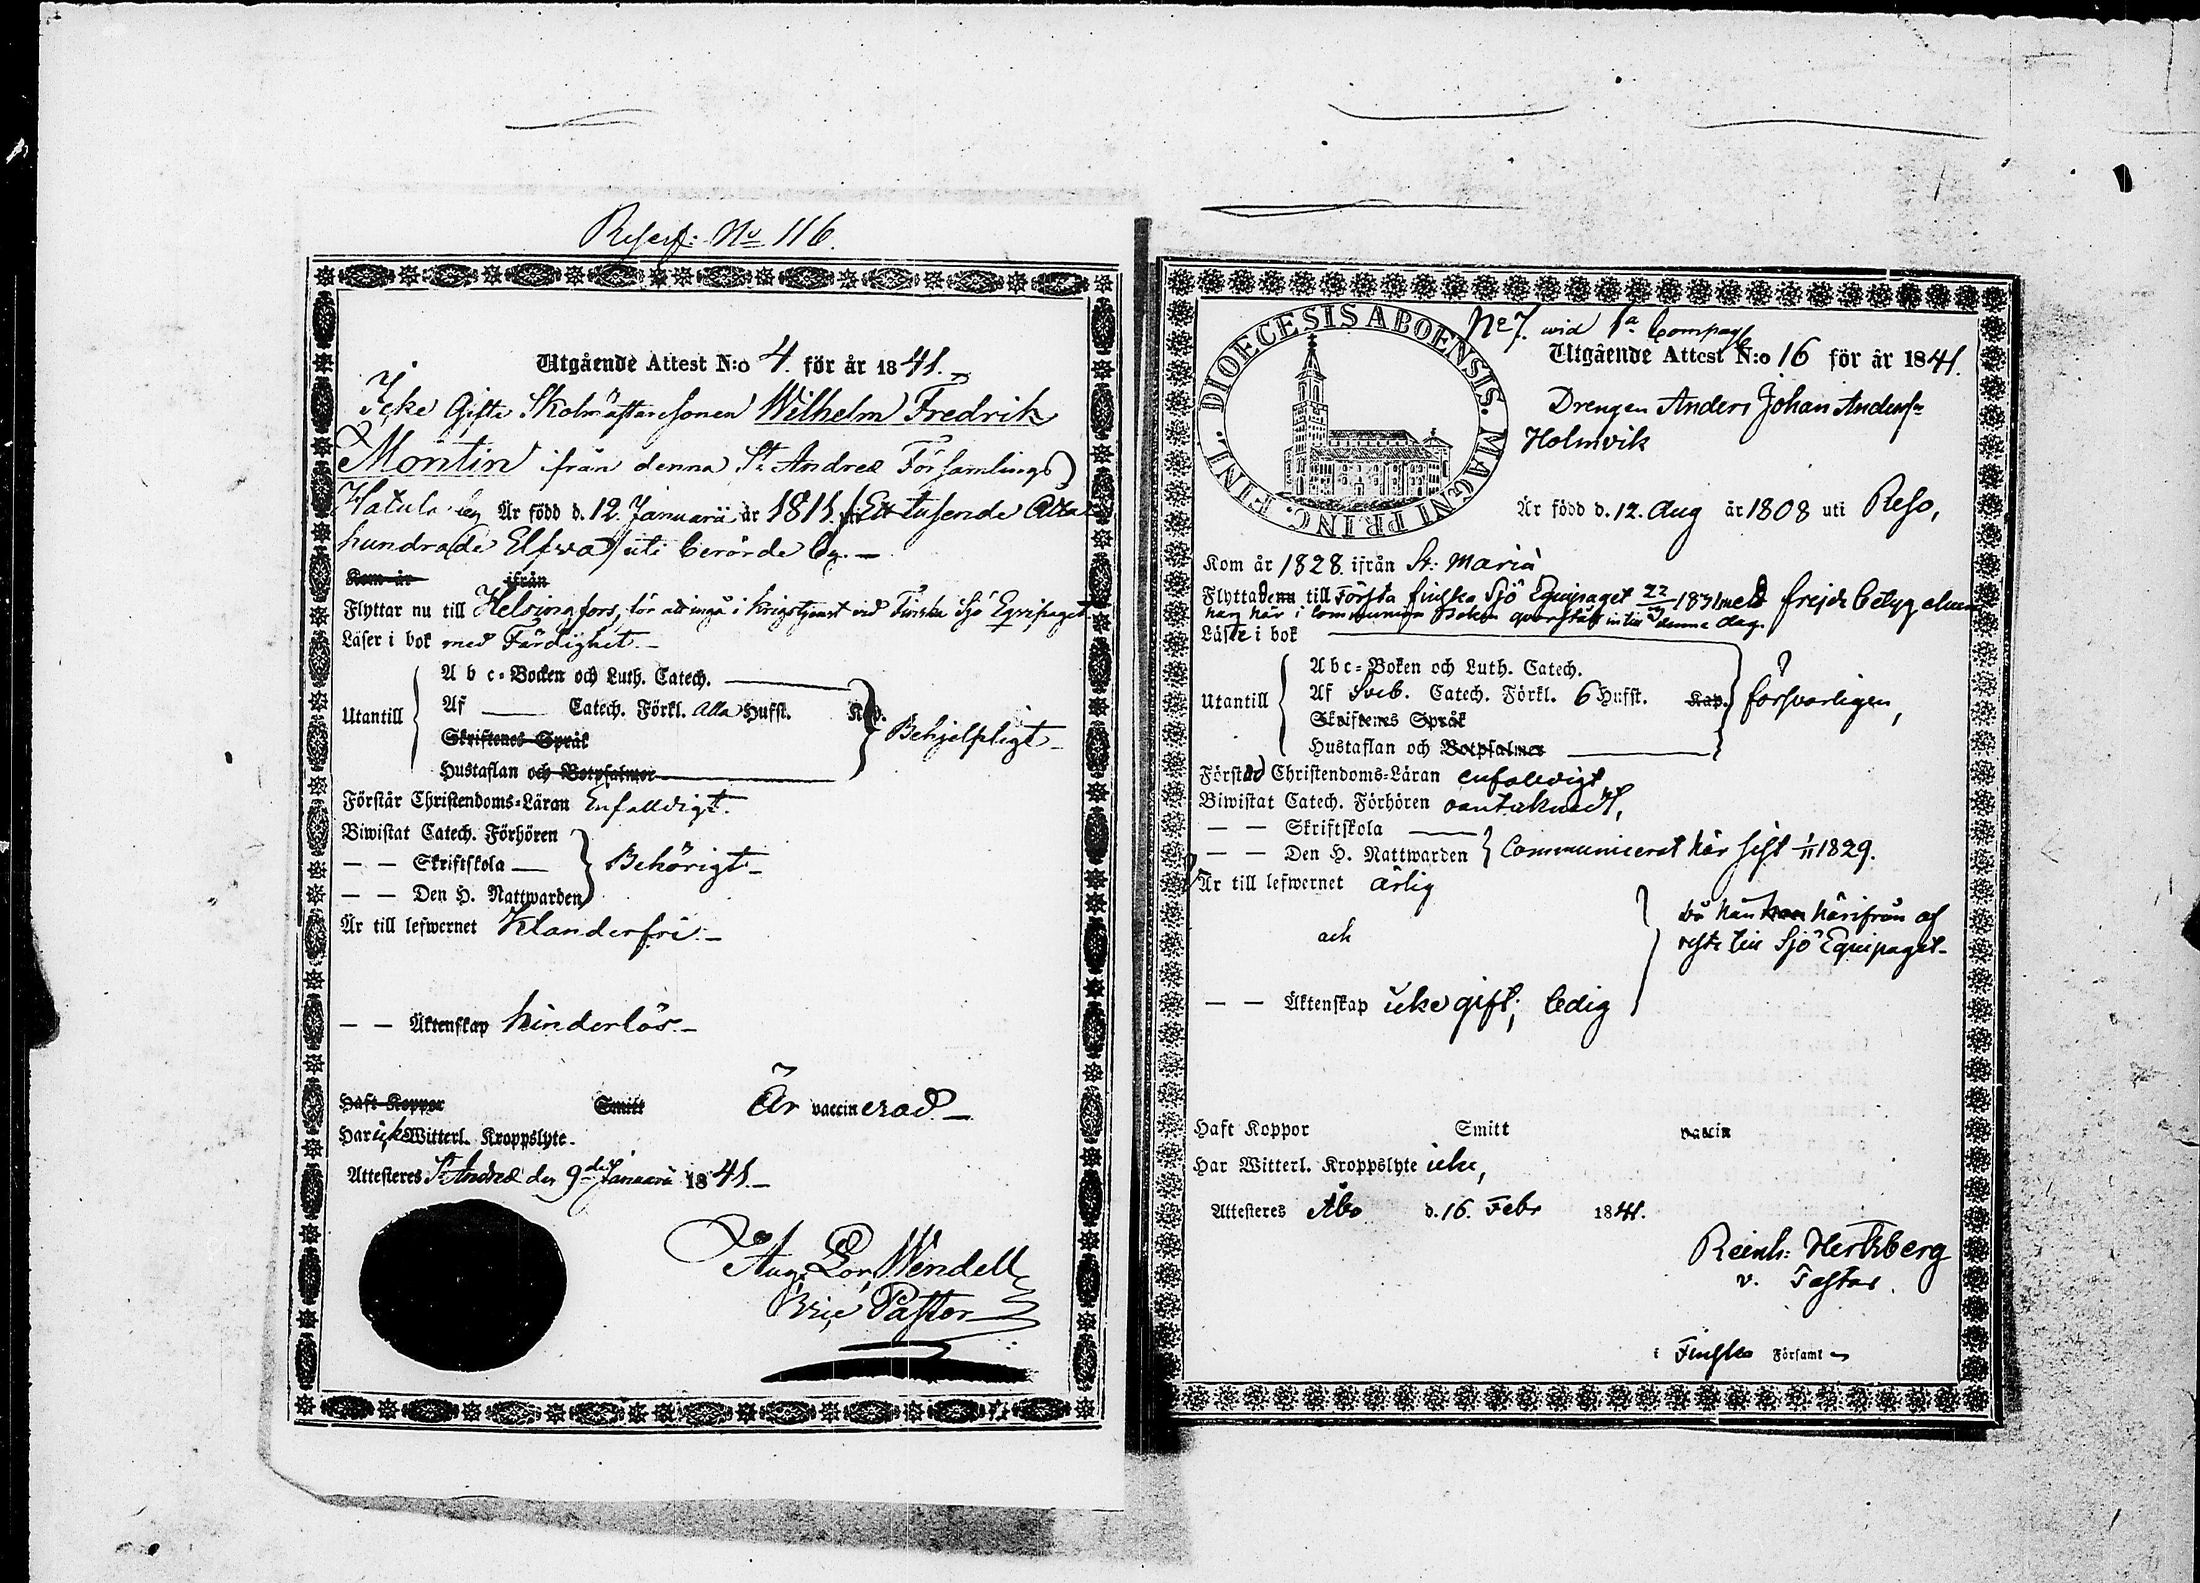 Reserf: No 116.
Utgående Attest N:o 4. för år 1841.
Icke Gifte Skolmästaresonen Wilhelm Fredrik
Montin ifrån denna St Andreæ Församlings
by Är född d. 12. Januarii år 1811. Ett tusende Åtta
hundrade Elfva uti berörde by.
Kom år ifrån
Flyttar nu till Helsingfors, för att ingå i krigstjenst vid Finska Sjö Equipaget.
Läser i bok med Färdighet.
Utantill
A b c-Bocken och Luth. Catech.
Af Catech. Förkl. Alla Hufst. Kap.
Skriftenes Språk
Hustaflan och Botpsalmer
Behjelpligt
Förstår Christendoms-Läran Enfalldigt.
Biwistat Catech. Förhören
— — Skriftskola
— — Den H. Nattwarden
Behörigt
Är till lefwernet Klanderfri.
— — Äktenskap hinderlös.
Haft Koppor Smitt Är vaccinerad.
Har icke Witterl. Kroppslyte.
Attesteres St Andreæ den 9de Januarii 1841.
Aug. Lor. Wendell
Vice Pastor
DIOECESIS ABOENSIS. MAGNI PRINC. FINL.
No 7. wid 1a Compag
Utgående Attest N:o 16 för år 1841.
Drengen Anders Johan Andersn
Holmvik
Är född d. 12. Aug år 1808 uti Reso,
Kom år 1828. ifrån St: Maria
Flyttade till Första finska Sjö Equipaget 22 1831 med frejde betyg
har här i Communion Boken qvarstått in till denna dag.
Läste i bok
Utantill
A b c-Boken och Luth. Catech.
Af Sveb. Catech. Förkl. 6 Hufst. Kap.
Skriftenes Språk
Hustaflan och Botpsalmer
försvarligen,
Förstod Christendoms-Läran enfalldigt
Biwistat Catech. Förhören oantecknadt,
— — Skriftskola
— — Den H. Nattwarden
Communicerat här sist 1/11 1829.
Är till lefwernet ärlig
och
— — Äktenskap icke gift, ledig
då han härifrån af
reste till Sjö Equipaget.
Haft Koppor Smitt vaccin
Har Witterl. Kroppslyte icke,
Attesteres Åbo d. 16. Febr 1841.
Reinh: Hertzberg
v. Pastor.
i Finska Församl